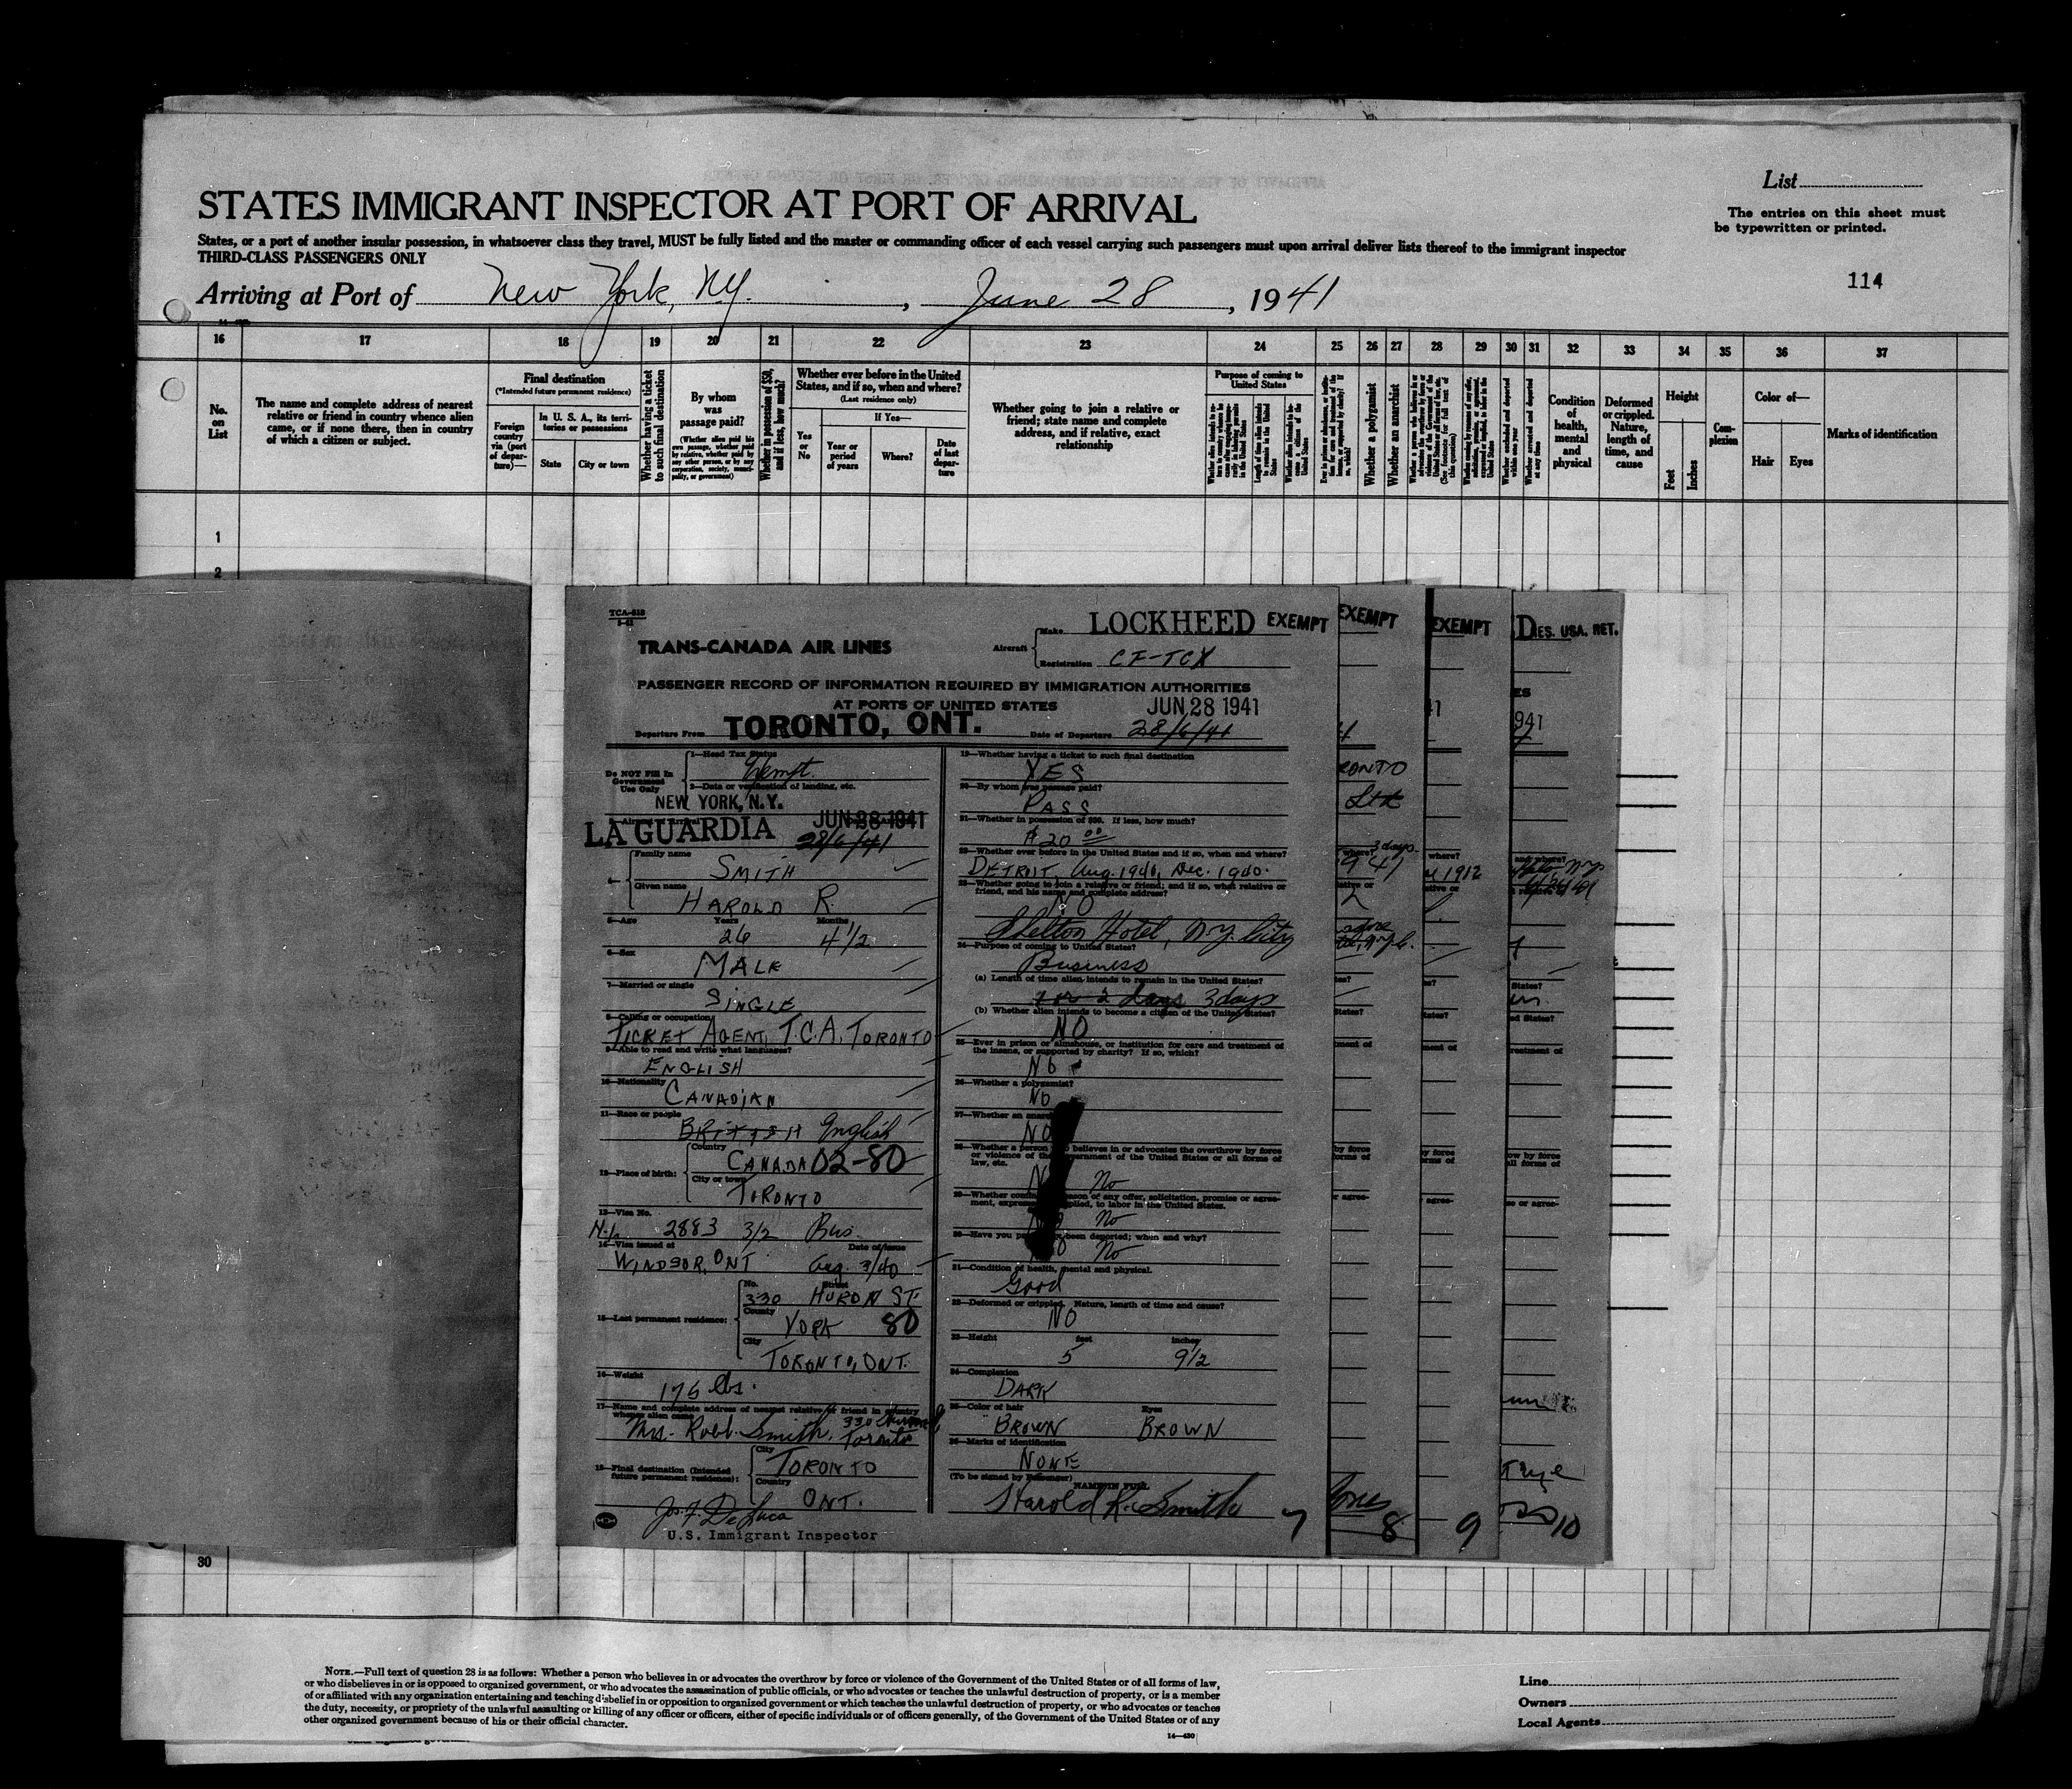 List
The entries on this sheet must
be typewritten or printed.
STATES IMMIGRANT INSPECTOR AT PORT OF ARRIVAL
States, or a port of another insular possession, in whatsoever class they travel, MUST be fully listed and the master or commanding officer of each vessel carrying such passengers must upon arrival deliver lists thereof to the immigrant inspector
THIRD-CLASS PASSENGERS ONLY
114
Arriving at Port of New York, N.Y. , June 28 , 1941
16 17 18 19 20 21 22 23 24 25 26 27 28 29 30 31 32 33 34 35 36 37
No. on List
The name and complete address of nearest
relative or friend in country whence alien
came, or if none there, then in country
of which a citizen or subject.
Final destination
(*Intended future permanent residence)
Foreign country via (port of departure)—
In U. S. A., its territories or possessions
State
City or town
Whether having a ticket to such final destination
By whom was passage paid?
(Whether alien paid his own passage, whether paid by relative, whether paid by any other person, or by any corporation, society, municipality, or government)
Whether in possession of $50, and if less, how much?
Whether ever before in the United
States, and if so, when and where?
(Last residence only)
Yes or No
If Yes—
Year or period of years
Where?
Date of last departure
Whether going to join a relative or
friend; state name and complete
address, and if relative, exact
relationship
Purpose of coming to
United States
Length of time alien intends to remain in the United States
Whether alien intends to become a citizen of the United States
Whether a polygamist
Whether an anarchist
Condition of health, mental and physical
Deformed or crippled. Nature, length of time, and cause
Height
Feet
Inches
Complexion
Color of—
Hair
Eyes
Marks of identification
1
2
TCA-518
TRANS-CANADA AIR LINES
Aircraft
Make LOCKHEED
Registration CF-TCX
EXEMPT
EXEMPT
EXEMPT
DIES. USA. RET.
PASSENGER RECORD OF INFORMATION REQUIRED BY IMMIGRATION AUTHORITIES
AT PORTS OF UNITED STATES
JUN 28 1941
Departure From TORONTO, ONT.
Date of Departure 28/6/41
Do NOT Fill In
Government
Use Only
1—Head Tax Status
Exempt.
2—Data or verification of landing, etc.
NEW YORK, N.Y.
LA GUARDIA
JUN 28 1941
28/6/41
Family name
SMITH
Given name
HAROLD R.
5—Age Years Months
26 4 1/2
6—Sex
MALE
7—Married or single
SINGLE
8—Calling or occupation
TICKET AGENT, T.C.A. TORONTO
9—Able to read and write what languages?
ENGLISH
10—Nationality
CANADIAN
11—Race or people
BRITISH English
12—Place of birth:
Country
CANADA 02-80
City or town
TORONTO
13—Visa No.
2883 3/2 Bus.
14—Visa issued at Date of issue
WINDSOR, ONT Aug. 3/40
15—Last permanent residence:
No. Street
330 HURON ST.
County
YORK 80
City
TORONTO, ONT.
16—Weight
175 lbs.
17—Name and complete address of nearest relative or friend in country
whence alien came
Mrs. Robt. Smith, 330 Huron
Toronto
18—Final destination (Intended
future permanent residence):
City
TORONTO
Country
ONT.
Jos. F. DeLuca
U.S. Immigrant Inspector
19—Whether having a ticket to such final destination
YES
20—By whom was passage paid?
PASS
21—Whether in possession of $50. If less, how much?
$20 00
22—Whether ever before in the United States and if so, when and where?
DETROIT, Aug. 1940, Dec. 1940.
23—Whether going to join a relative or friend; and if so, what relative or
friend, and his name and complete address?
NO
Shelton Hotel, N.Y. City
24—Purpose of coming to United States?
Business
(a) Length of time alien intends to remain in the United States?
1 or 2 days 3 days
(b) Whether alien intends to become a citizen of the United States?
NO
25—Ever in prison or almshouse, or institution for care and treatment of
the insane, or supported by charity? If so, which?
NO
26—Whether a polygamist?
NO
27—Whether an
NO
28—Whether a person believes in or advocates the overthrow by force
or violence of the Government of the United States or all forms of
law, etc.
No
29—Whether reason of any offer, solicitation, promise or agree-
ment, to labor in the United States.
No
30—Have you been deported; when and why?
No
31—Condition of health, mental and physical.
Good
32—Deformed or crippled. Nature, length of time and cause?
NO
33—Height feet inches
5 9 1/2
34—Complexion
DARK
35—Color of hair Eyes
BROWN BROWN
36—Marks of identification
NONE
(To be signed by Passenger) NAME IN FULL
Harold R. Smith
7
8
9
10
30
NOTE.—Full text of question 28 is as follows: Whether a person who believes in or advocates the overthrow by force or violence of the Government of the United States or of all forms of law,
or who disbelieves in or is opposed to organized government, or who advocates the assassination of public officials, or who advocates or teaches the unlawful destruction of property, or is a member
of or affiliated with any organization entertaining and teaching disbelief in or opposition to organized government or which teaches the unlawful destruction of property, or who advocates or teaches
the duty, necessity, or propriety of the unlawful assaulting or killing of any officer or officers, either of specific individuals or of officers generally, of the Government of the United States or of any
other organized government because of his or their official character.
14—430
Line
Owners
Local Agents